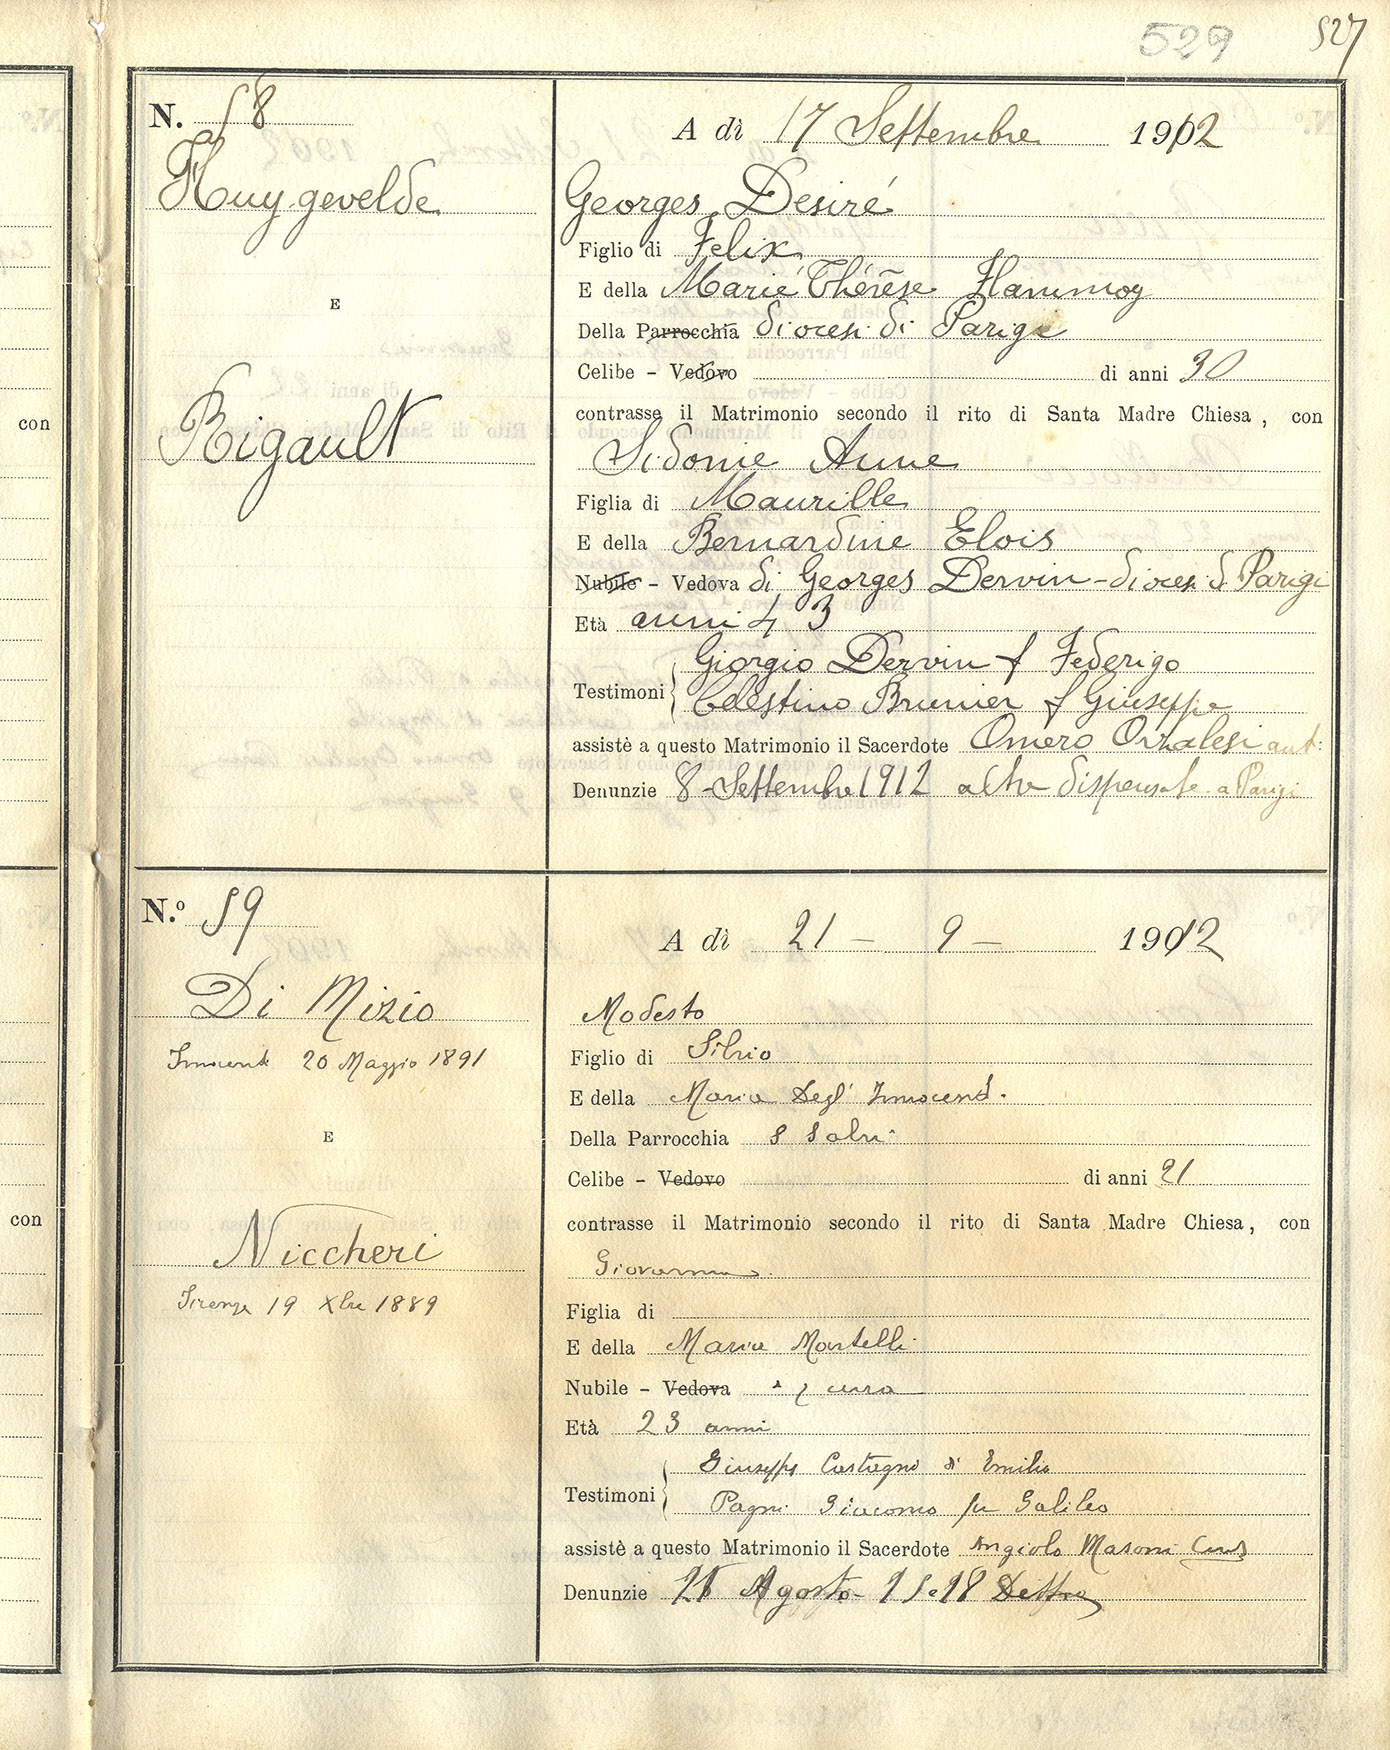 529 527
N. 58
Huygevelde
E
Rigault
A dì 17 Settembre 1912
Georges Desiré
Figlio di Felix
E della Marie Thérèse Hammoy
Della Parrocchia diocesi di Parigi
Celibe - Vedovo di anni 30
contrasse il Matrimonio secondo il rito di Santa Madre Chiesa, con
Sidonie Anne
Figlia di Maurille
E della Bernardine Elois
Nubile - Vedova di Georges Dervin - diocesi di Parigi
Età anni 43
Testimoni Giorgio Dervin f Federigo
Celestino Brunier f Giuseppe
assistè a questo Matrimonio il Sacerdote Omero Orzalesi aut:
Denunzie 8 - Settembre 1912 altre dispensate a Parigi
N.º 59
Di Mizio
Innocenti 20 Maggio 1891
E
Niccheri
Firenze 19 Xbre 1889
A dì 21 - 9 - 1912
Modesto
Figlio di Silvio
E della Maria Degl' Innocenti
Della Parrocchia S Salvi
Celibe - Vedovo di anni 21
contrasse il Matrimonio secondo il rito di Santa Madre Chiesa, con
Giovanna
Figlia di
E della Maria Martelli
Nubile - Vedova cura
Età 23 anni
Testimoni Giuseppe Castagni di Emilio
Pagni Giacomo fu Galileo
assistè a questo Matrimonio il Sacerdote Angiolo Masoni
Denunzie Agosto - Settre
con
con